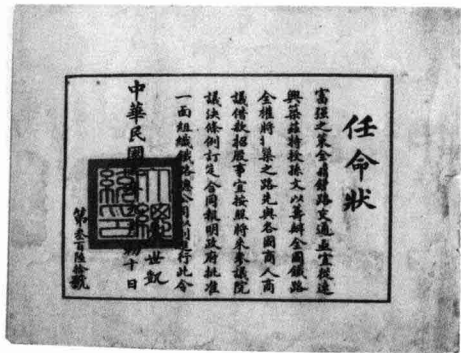 任命狀
富强之策全藉鐵路交通亟宜從速
興築茲特授孫文以籌辦全國鐵路
全權將築之路先與各國商人商
議借款招股事宜按照將來參議院
議決條例訂定合同報明政府批准
一面組織鐵路總公司 行此令
世凱
中華民國 初十日
大總統印
第叁百陸拾號